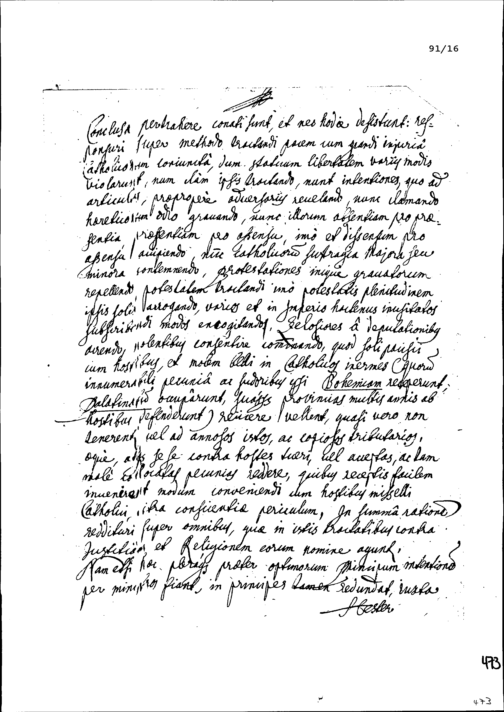 91/16
Conclusa pertrahere conati sunt, et nec hodie desistunt: res-
ponsuri super methodo tractandi pacem cum quandi injuria
Catholicorum coniunctâ dum statuum libertatem varijs modis
violarunt, num clàm ipsis tractando, nunc intentiones, quo ad
articulos, proproperè adversarijs revelando, nunc clamando
haereticorum odio gravando, nunc illorum absentiam pro prae-
sentia, praesentiam pro assensu, imò et dissensum pro
assensu accipiendo nunc Catholicorū suffragia majora seu
minora contemnendo, protestationes inique gravatorum
repellendo potestatem tractandi imò potestatis plenitudinem
ipsis solis arrogando, varios et in Imperio hactenus inusitatos
modos excogitandos, à deputationibus
nolentibus consentire cominando, quod soli pacisci
cum hostibus, et molem belli in Catholicos inermes (quorū
innumerabili pecuniâ ac sudoribus ipsi Bohemiam receperunt,
Palatinatū occuparunt, quasque provincias multis annis ab
hostibus defenderunt) reiicere vellent, quasi vero non
tenerent vel ad annosos istos, ac copiosos tributarios,
sese contra hostes tueri, vel acceptas, ac tam
malè collocatas pecunias reddere, quibus receptis facilem
invenerint modum conveniendi cum hostibus miselli
Catholici, citra conscientiae periculum, In summâ rationē
reddituri super omnibus, quae in istis tractatibus contra
Justitiam et Religionem eorum nomine agunt.
Nam etsi haec praeter optimorum principum intentionē
per ministros fiant, in principes tamen redundat, iuxta
473
473